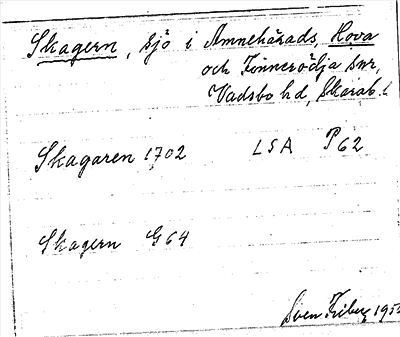 Skagern, sjö i Amnehärads, Hova
och Finnerödja snr,
Vadsbo hd, Skarab. l
Skagaren 1702 LSA P62
Skagern G64
Sven